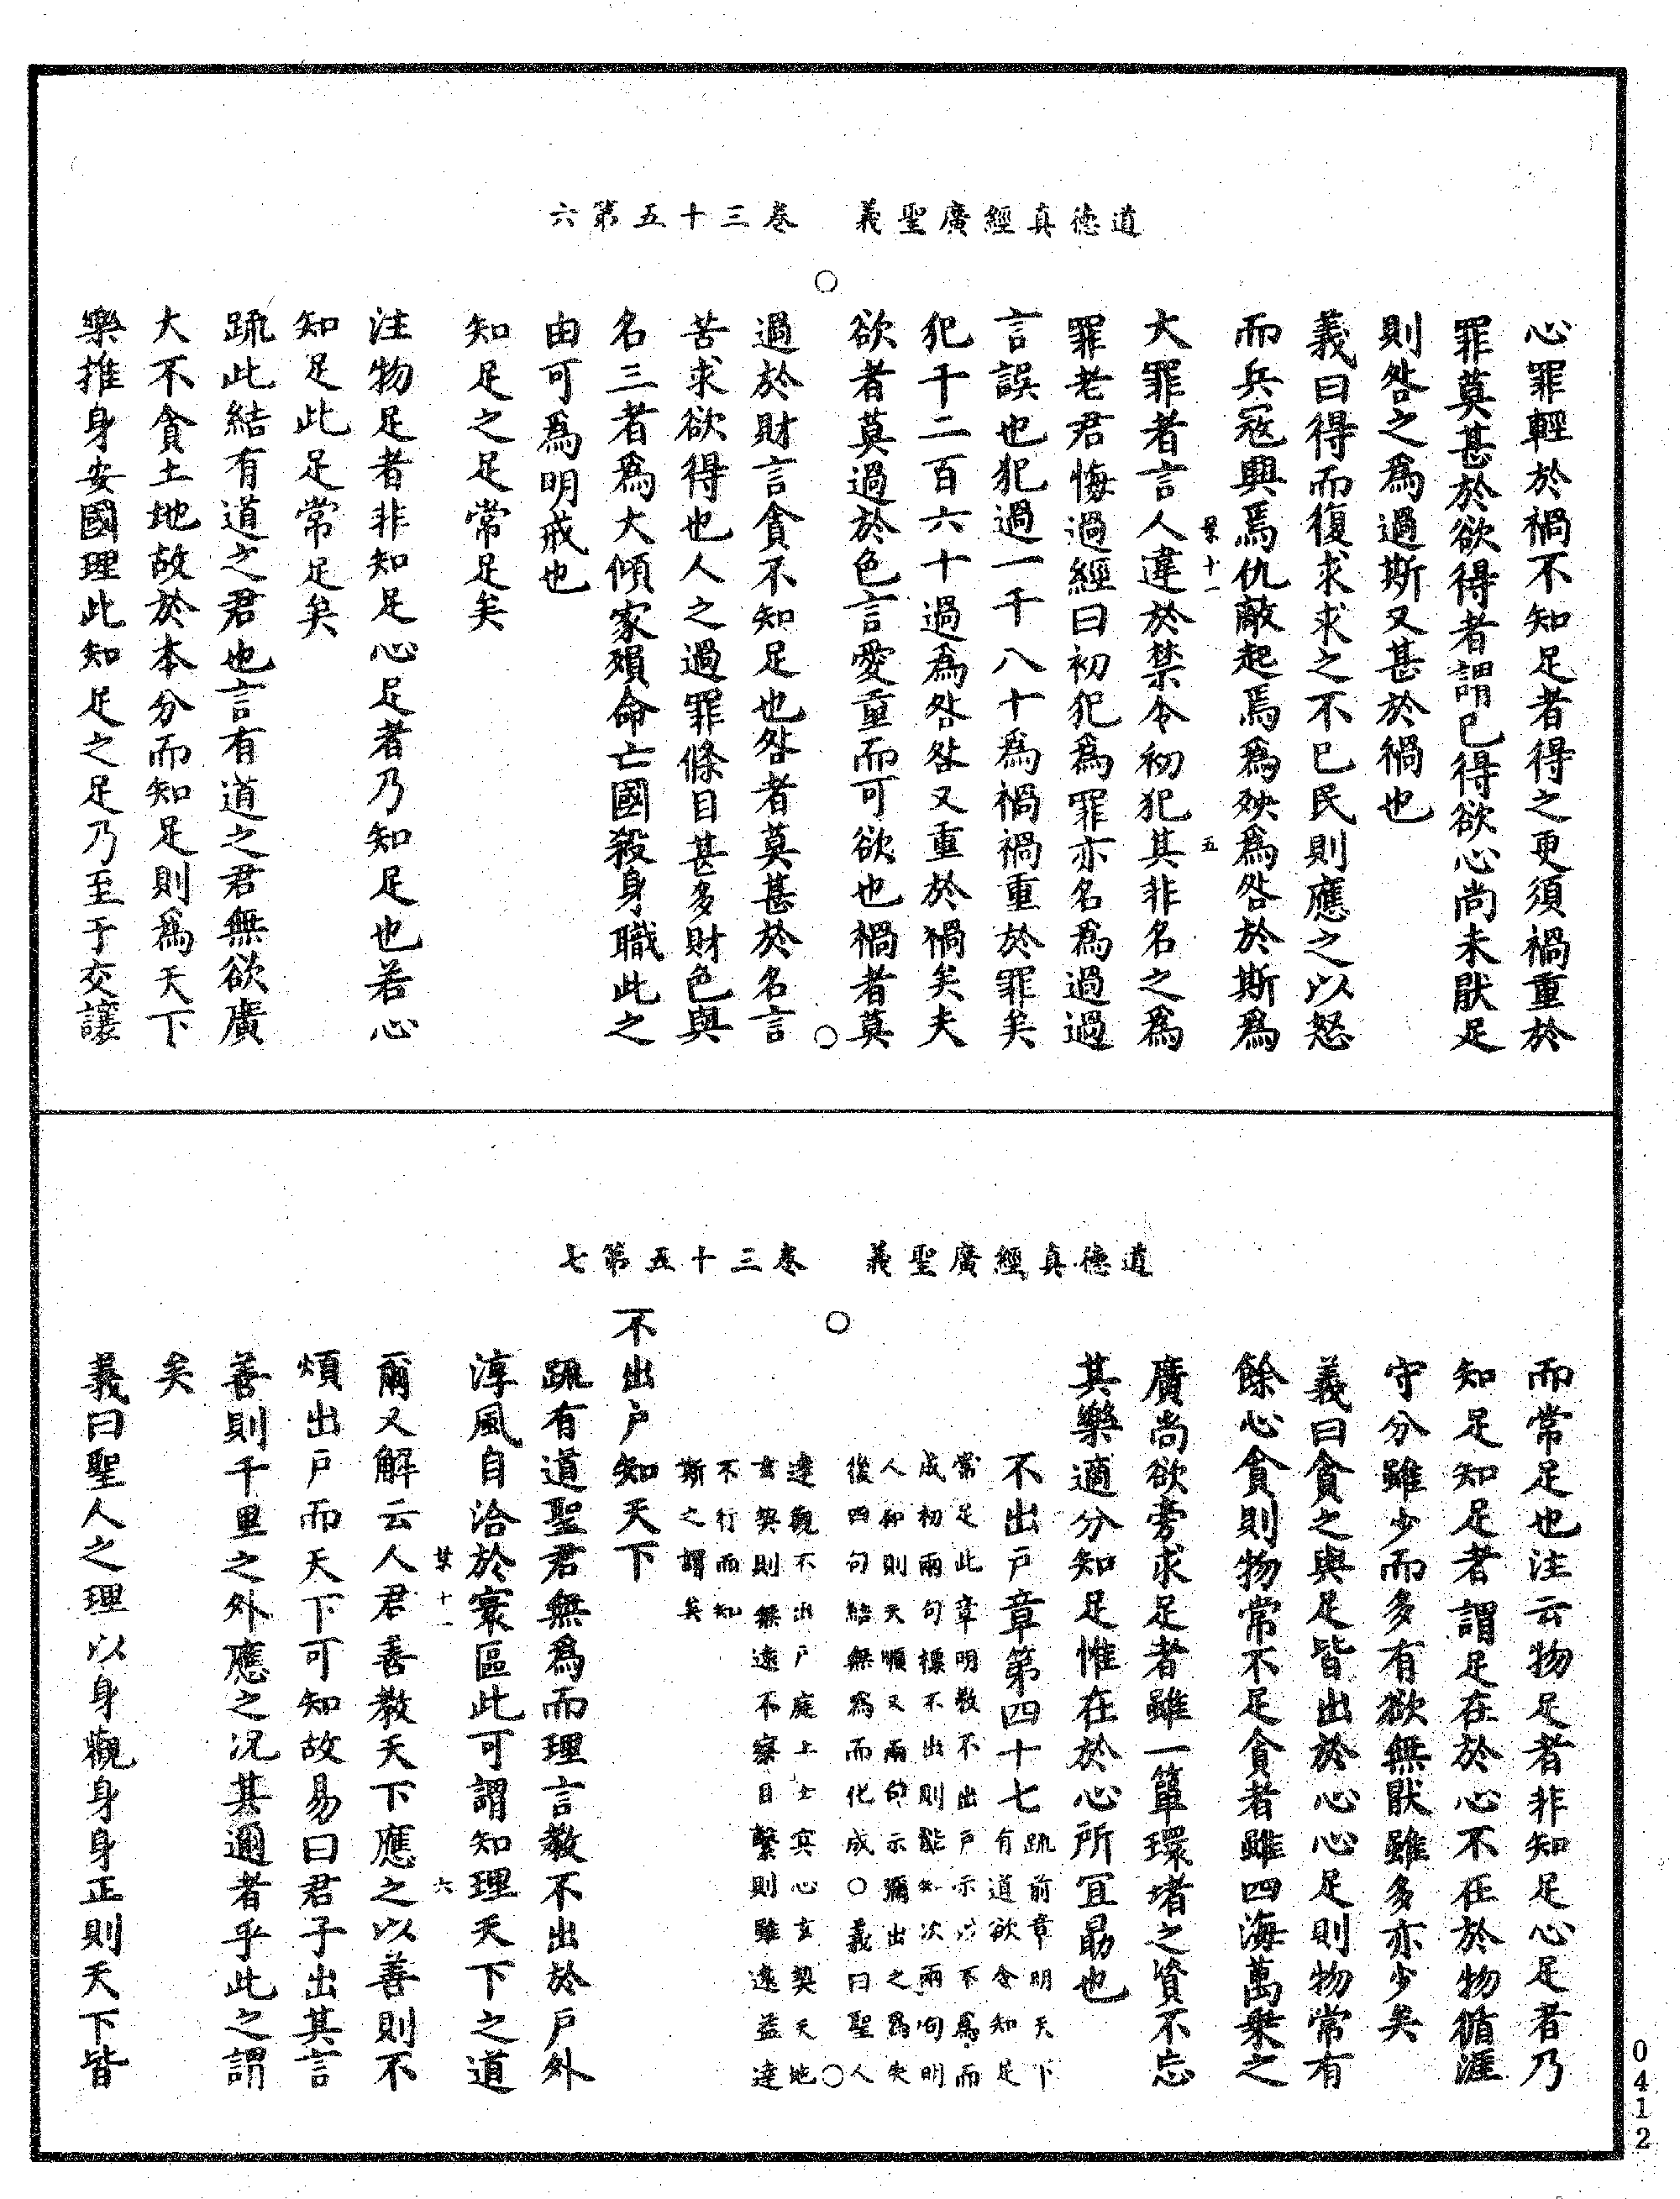 道德真經廣聖義　卷三十五第六
心罪輕於禍不知足者得之更須禍重於
罪莫甚於欲得者謂已得欲心尚未猒足
則咎之為過斯又甚於禍也
義曰得而復求求之不已民則應之以怒
而兵寇興焉仇敵起焉為殃為咎於斯為
菓十一　五
大罪者言人違於禁令初犯其非名之為
罪老君悔過經曰初犯為罪亦名為過過
言誤也犯過一千八十為禍禍重於罪矣
犯千二百六十過為咎咎又重於禍矣夫
欲者莫過於色言愛重而可欲也禍者莫
過於財言貪不知足也咎者莫甚於名言
苦求欲得也人之過罪條目甚多財色與
名三者為大傾家殞命亡國殺身職此之
由可為明戒也
知足之足常足矣
注物足者非知足心足者乃知足也若心
知足此足常足矣
疏此結有道之君也言有道之君無欲廣
大不貪土地故於本分而知足則為天下
樂推身安國理此知足之足乃至于交讓
道德真經廣聖義　卷三十五第七
而常足也注云物足者非知足心足者乃
知足知足者謂足在於心不在於物循涯
守分雖少而多有欲無猒雖多亦少矣
義曰貪之與足皆出於心心足則物常有
餘心貪則物常不足貪者雖四海萬乘之
廣尚欲旁求足者雖一簞環堵之資不忘
其樂適分知足惟在於心所宜勗也
不出戶章第四十七
疏前章明天下
有道欲令知足
常足此章明教不出戶示以不為而
成初兩句標不出則能知次兩句明
人和則天順又兩句示彌出之為失
後四句結無為而化成○義曰聖人
達觀不出戶庭上士冥心玄契天地
玄契則無遠不察目繫則雖遠益達
不行而知
斯之謂矣
不出戶知天下
疏有道聖君無為而理言教不出於戶外
淳風自洽於寰區此可謂知理天下之道
菓十一　六
爾又解云人君善教天下應之以善則不
煩出戶而天下可知故易曰君子出其言
善則千里之外應之况其邇者乎此之謂
矣
義曰聖人之理以身觀身身正則天下皆
0412